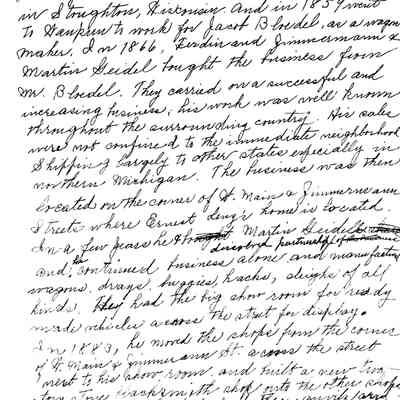 in Stoughton, Wisconsin and in 1857 went
to Waupun to work for Jacob Bloedel, as a wagon
maker. In 1866, Ferdinand Zimmermann &
Martin Seidel bought the business from
Mr. Bloedel. They carried on a successful and
increasing business, his work was well known
throughout the surrounding country. His sales
were not confined to the immediate neighborhood
Shipping largely to other states especially in
northern Michigan. The business was then
located on the corner of W. Main & Zimmermann
Streets where Ernest home is located.
In a few years he Martin Seidel
dissolved partnership
and he continued business alone and manufactured
wagons, drays, buggies, hacks, sleighs of all
kinds. They had the big show room for ready
made vehicles across the street for display.
In 1883, he moved the shops from the corner
of W. Main & Zimmermann St. across the street
next to his show room, and built a new two-
story stone blacksmith shop onto the other shops
anvils and